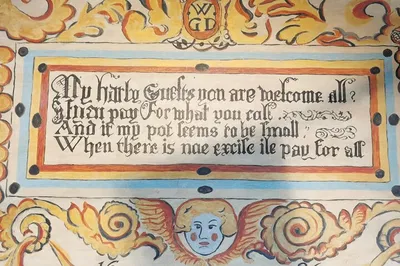 W
GD
My harty Guests you are welcome all
pay For what you call
And if my pot seems to be small
When there is noe excise ile pay for all